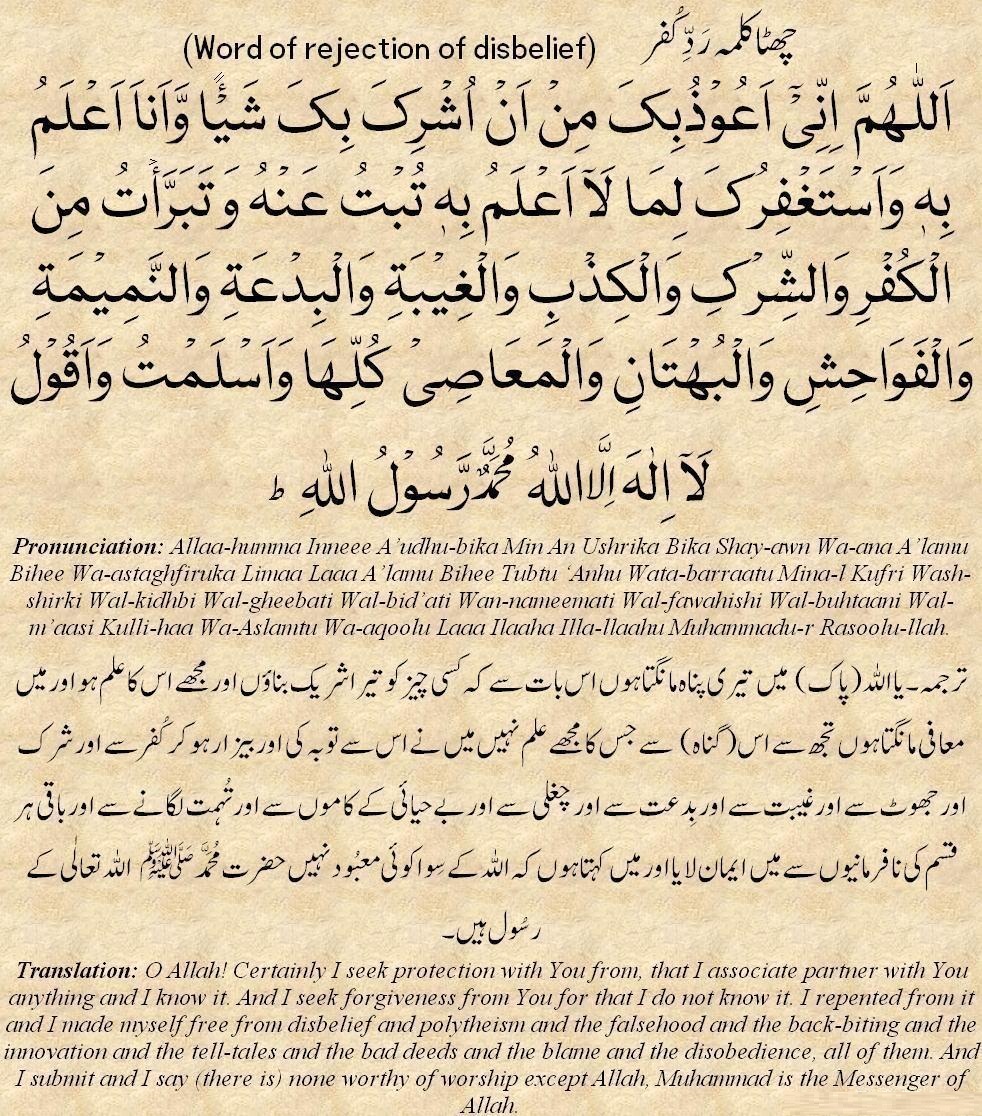 (Word of rejection of disbelief) چھٹا کلمہ رَدِّ کُفر
اَللّٰهُمَّ اِنِّیْٓ اَعُوْذُبِکَ مِنْ اَنْ اُشْرِکَ بِکَ شَیْئًا وَّاَنَا اَعْلَمُ
بِهٖ وَاَسْتَغْفِرُکَ لِمَا لَآ اَعْلَمُ بِهٖ تُبْتُ عَنْهُ وَ تَبَرَّأْتُ مِنَ
الْکُفْرِ وَالشِّرْکِ وَالْکِذْبِ وَالْغِیْبَةِ وَالْبِدْعَةِ وَالنَّمِیْمَةِ
وَالْفَوَاحِشِ وَالْبُهْتَانِ وَالْمَعَاصِیْ کُلِّهَا وَاَسْلَمْتُ وَاَقُوْلُ
لَآ اِلٰهَ اِلَّا اللهُ مُحَمَّدٌ رَّسُوْلُ اللهِ ؕ
Pronunciation: Allaa-humma Inneee A’udhu-bika Min An Ushrika Bika Shay-awn Wa-ana A’lamu
Bihee Wa-astaghfiruka Limaa Laaa A’lamu Bihee Tubtu ‘Anhu Wata-barraatu Mina-l Kufri Wash-
shirki Wal-kidhbi Wal-gheebati Wal-bid’ati Wan-nameemati Wal-fawahishi Wal-buhtaani Wal-
m’aasi Kulli-haa Wa-Aslamtu Wa-aqoolu Laaa Ilaaha Illa-llaahu Muhammadu-r Rasoolu-llah.
ترجمہ۔ یااللہ (پاک) میں تیری پناہ مانگتا ہوں اس بات سے کہ کسی چیز کو تیرا شریک بناؤں اور مجھے اس کا علم ہو اور میں
معافی مانگتا ہوں تجھ سے اس (گناہ) سے جس کا مجھے علم نہیں میں نے اس سے توبہ کی اور بیزار ہو کر کُفر سے اور شرک
اور جھوٹ سے اور غیبت سے اور بِدعت سے اور چغلی سے اور بے حیائی کے کاموں سے اور تُہمت لگانے سے اور باقی ہر
قسم کی نافرمانیوں سے میں ایمان لایا اور میں کہتا ہوں کہ اللہ کے سِوا کوئی معبُود نہیں حضرت مُحمَّد ﷺ اللہ تعالٰی کے
رسُول ہیں۔
Translation: O Allah! Certainly I seek protection with You from, that I associate partner with You
anything and I know it. And I seek forgiveness from You for that I do not know it. I repented from it
and I made myself free from disbelief and polytheism and the falsehood and the back-biting and the
innovation and the tell-tales and the bad deeds and the blame and the disobedience, all of them. And
I submit and I say (there is) none worthy of worship except Allah, Muhammad is the Messenger of
Allah.